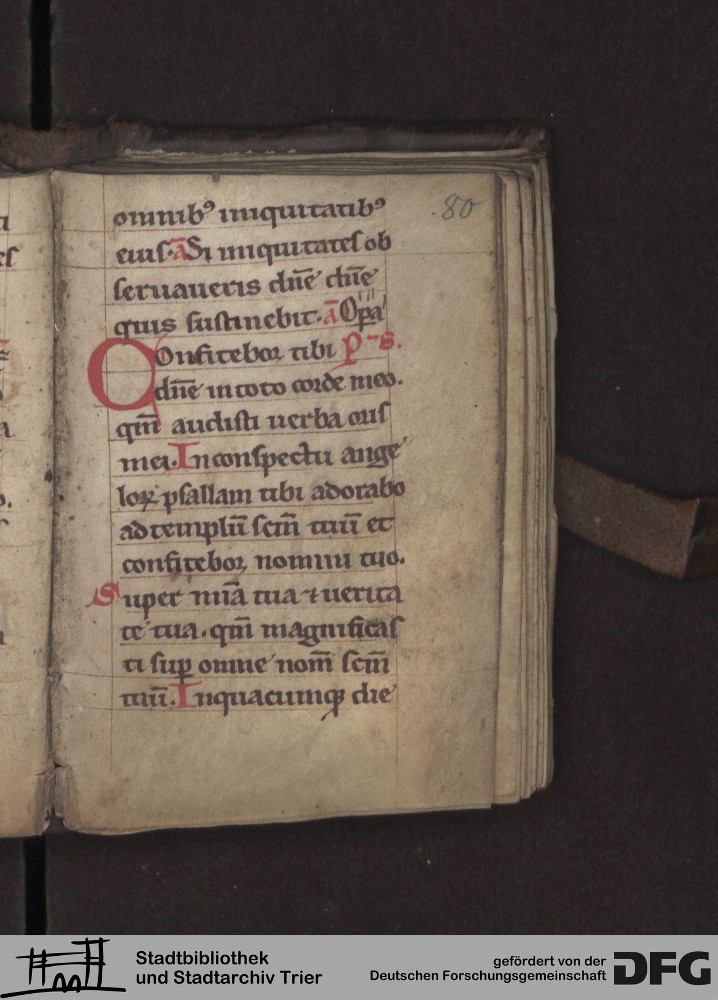 omnibꝰ iniquitatibꝰ
80
eius. ā Si iniquitates ob
seruaueris dn̄e dn̄e
quis sustinebit. ā Oꝑa
Confitebor tibi p̄s.
dn̄e in toto corde meo.
qm̄ audisti uerba oris
mei. In conspectu ange
loꝝ psallam tibi adorabo
ad templū scm̄ tuū et
confitebor nomini tuo.
Super mīa tua ⁊ uerita
te tua. qm̄ magnificas
ti suꝑ omne nom̄ scm̄
tuū. In quacumqꝫ die
Stadtbibliothek
und Stadtarchiv Trier
gefördert von der
Deutschen Forschungsgemeinschaft
DFG